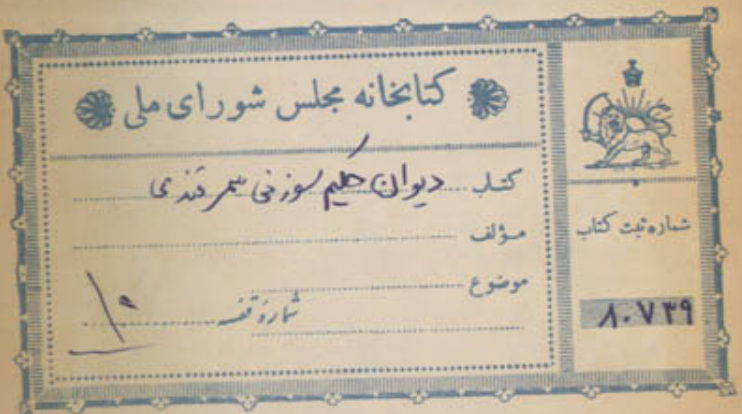 کتابخانه مجلس شورای ملی
کتاب دیوان حکیم سوزنی سمرقندی
مؤلف
موضوع
شماره قفسه
شماره ثبت کتاب
۸۰۷۳۹